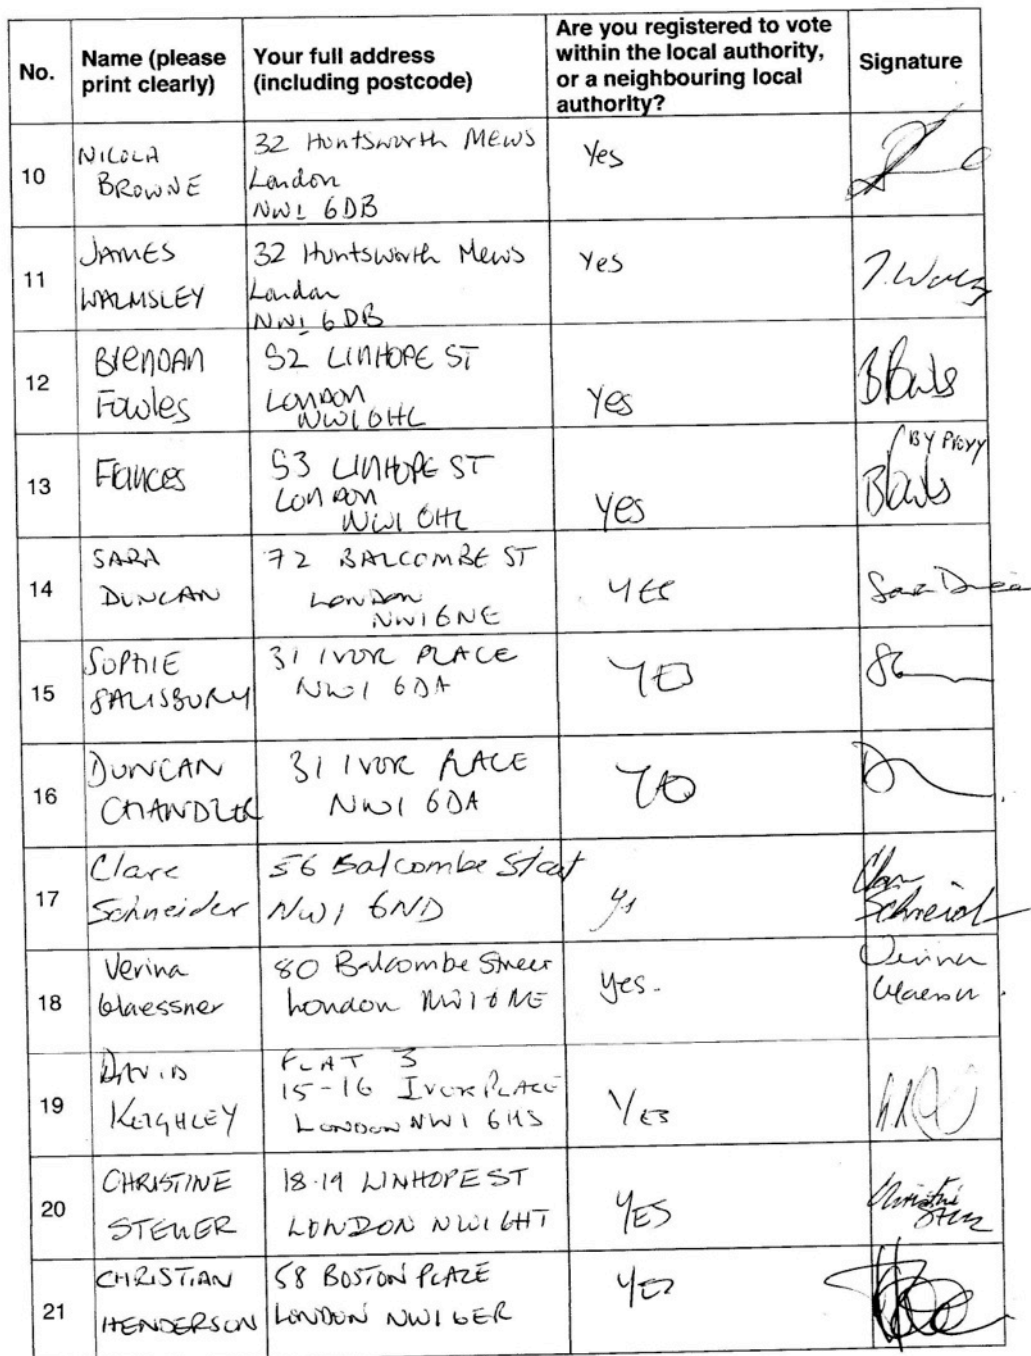 No.
Name (please
print clearly)
Your full address
(including postcode)
Are you registered to vote
within the local authority,
or a neighbouring local
authority?
Signature
10
NICOLA
BROWNE
32 Huntsworth MEWS
London
NW1 6DB
Yes
11
JAMES
WALMSLEY
32 Huntsworth Mews
London
NW1 6DB
Yes
12
BrenDAN
Fowles
52 LINHOPE ST
LONDON
NW1 6HL
Yes
B Fowles
13
Frances
53 LINHOPE ST
LONDON
NW1 6HL
Yes
BY PROXY
B Fowles
14
SARA
DUNCAN
72 BALCOMBE ST
LONDON
NW1 6NE
YES
Sara Duncan
15
SOPHIE
SALISBURY
31 IVOR PLACE
NW1 6DA
YES
16
DUNCAN
CHANDLER
31 IVOR PLACE
NW1 6DA
YES
17
Clare
Schneider
56 Balcombe Street
NW1 6ND
Yes
Clare
Schneider
18
Verina
Glaessner
80 Balcombe Street
London NW1 6NE
Yes.
Verina
Glaessner
19
DAVID
KEIGHLEY
FLAT 3
15-16 IVOR PLACE
LONDON NW1 6HS
YES
20
CHRISTINE
STEWER
18-19 LINHOPE ST
LONDON NW1 6HT
YES
Christine
21
CHRISTIAN
HENDERSON
58 BOSTON PLACE
LONDON NW1 6ER
YES